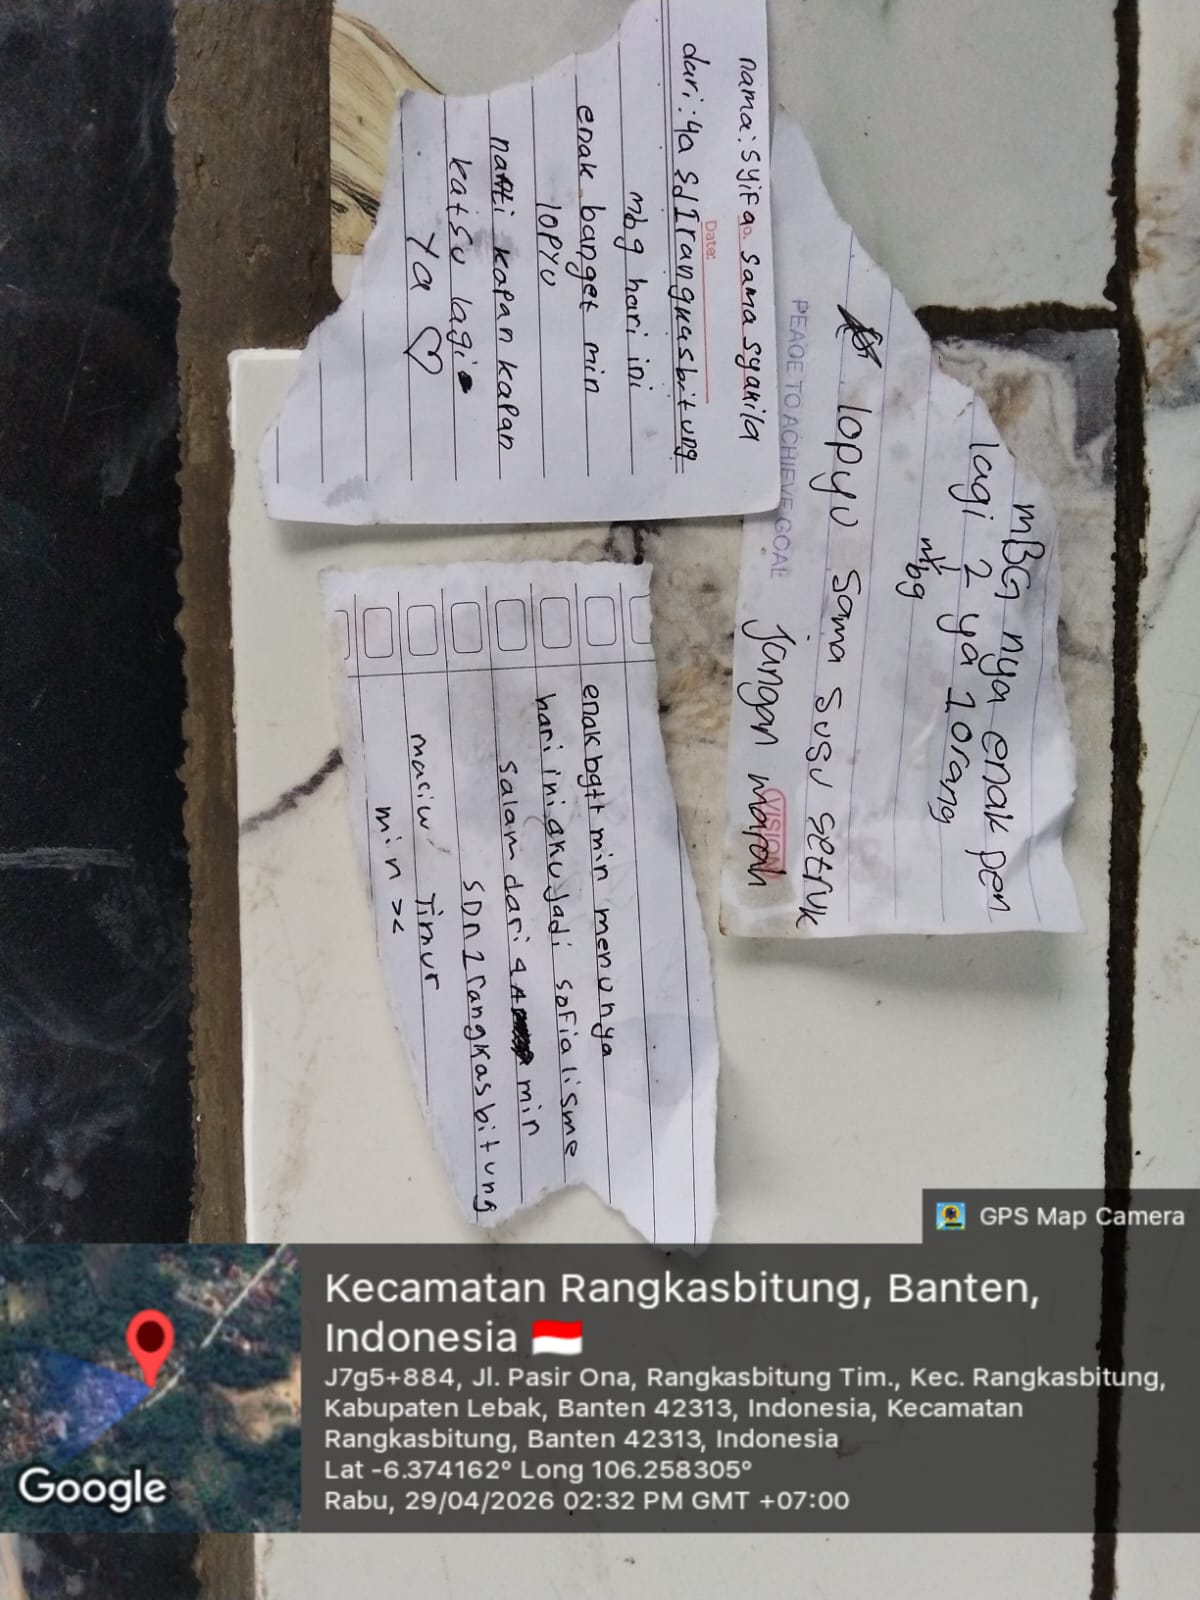 nama: syifa. sama syakila
Date:
dari: 4a sd 1 rangkasbitung
mbg hari ini
enak banget min
lopyu
nanti kapan kapan
katsu lagi
Ya ♡
mBG nya enak pen
lagi 2 ya 1 orang
mbg
lopyu sama susu setruk
PEACE TO ACHIEVE GOAL
VISION
jangan marah
enak bgtt min menunya
hari ini aku jadi sofialisme
salam dari 4A min
SDn 1 rangkasbitung
maciw Timur
min ><
GPS Map Camera
Kecamatan Rangkasbitung, Banten,
Indonesia 🇮🇩
J7g5+884, Jl. Pasir Ona, Rangkasbitung Tim., Kec. Rangkasbitung,
Kabupaten Lebak, Banten 42313, Indonesia, Kecamatan
Rangkasbitung, Banten 42313, Indonesia
Lat -6.374162° Long 106.258305°
Rabu, 29/04/2026 02:32 PM GMT +07:00
Google